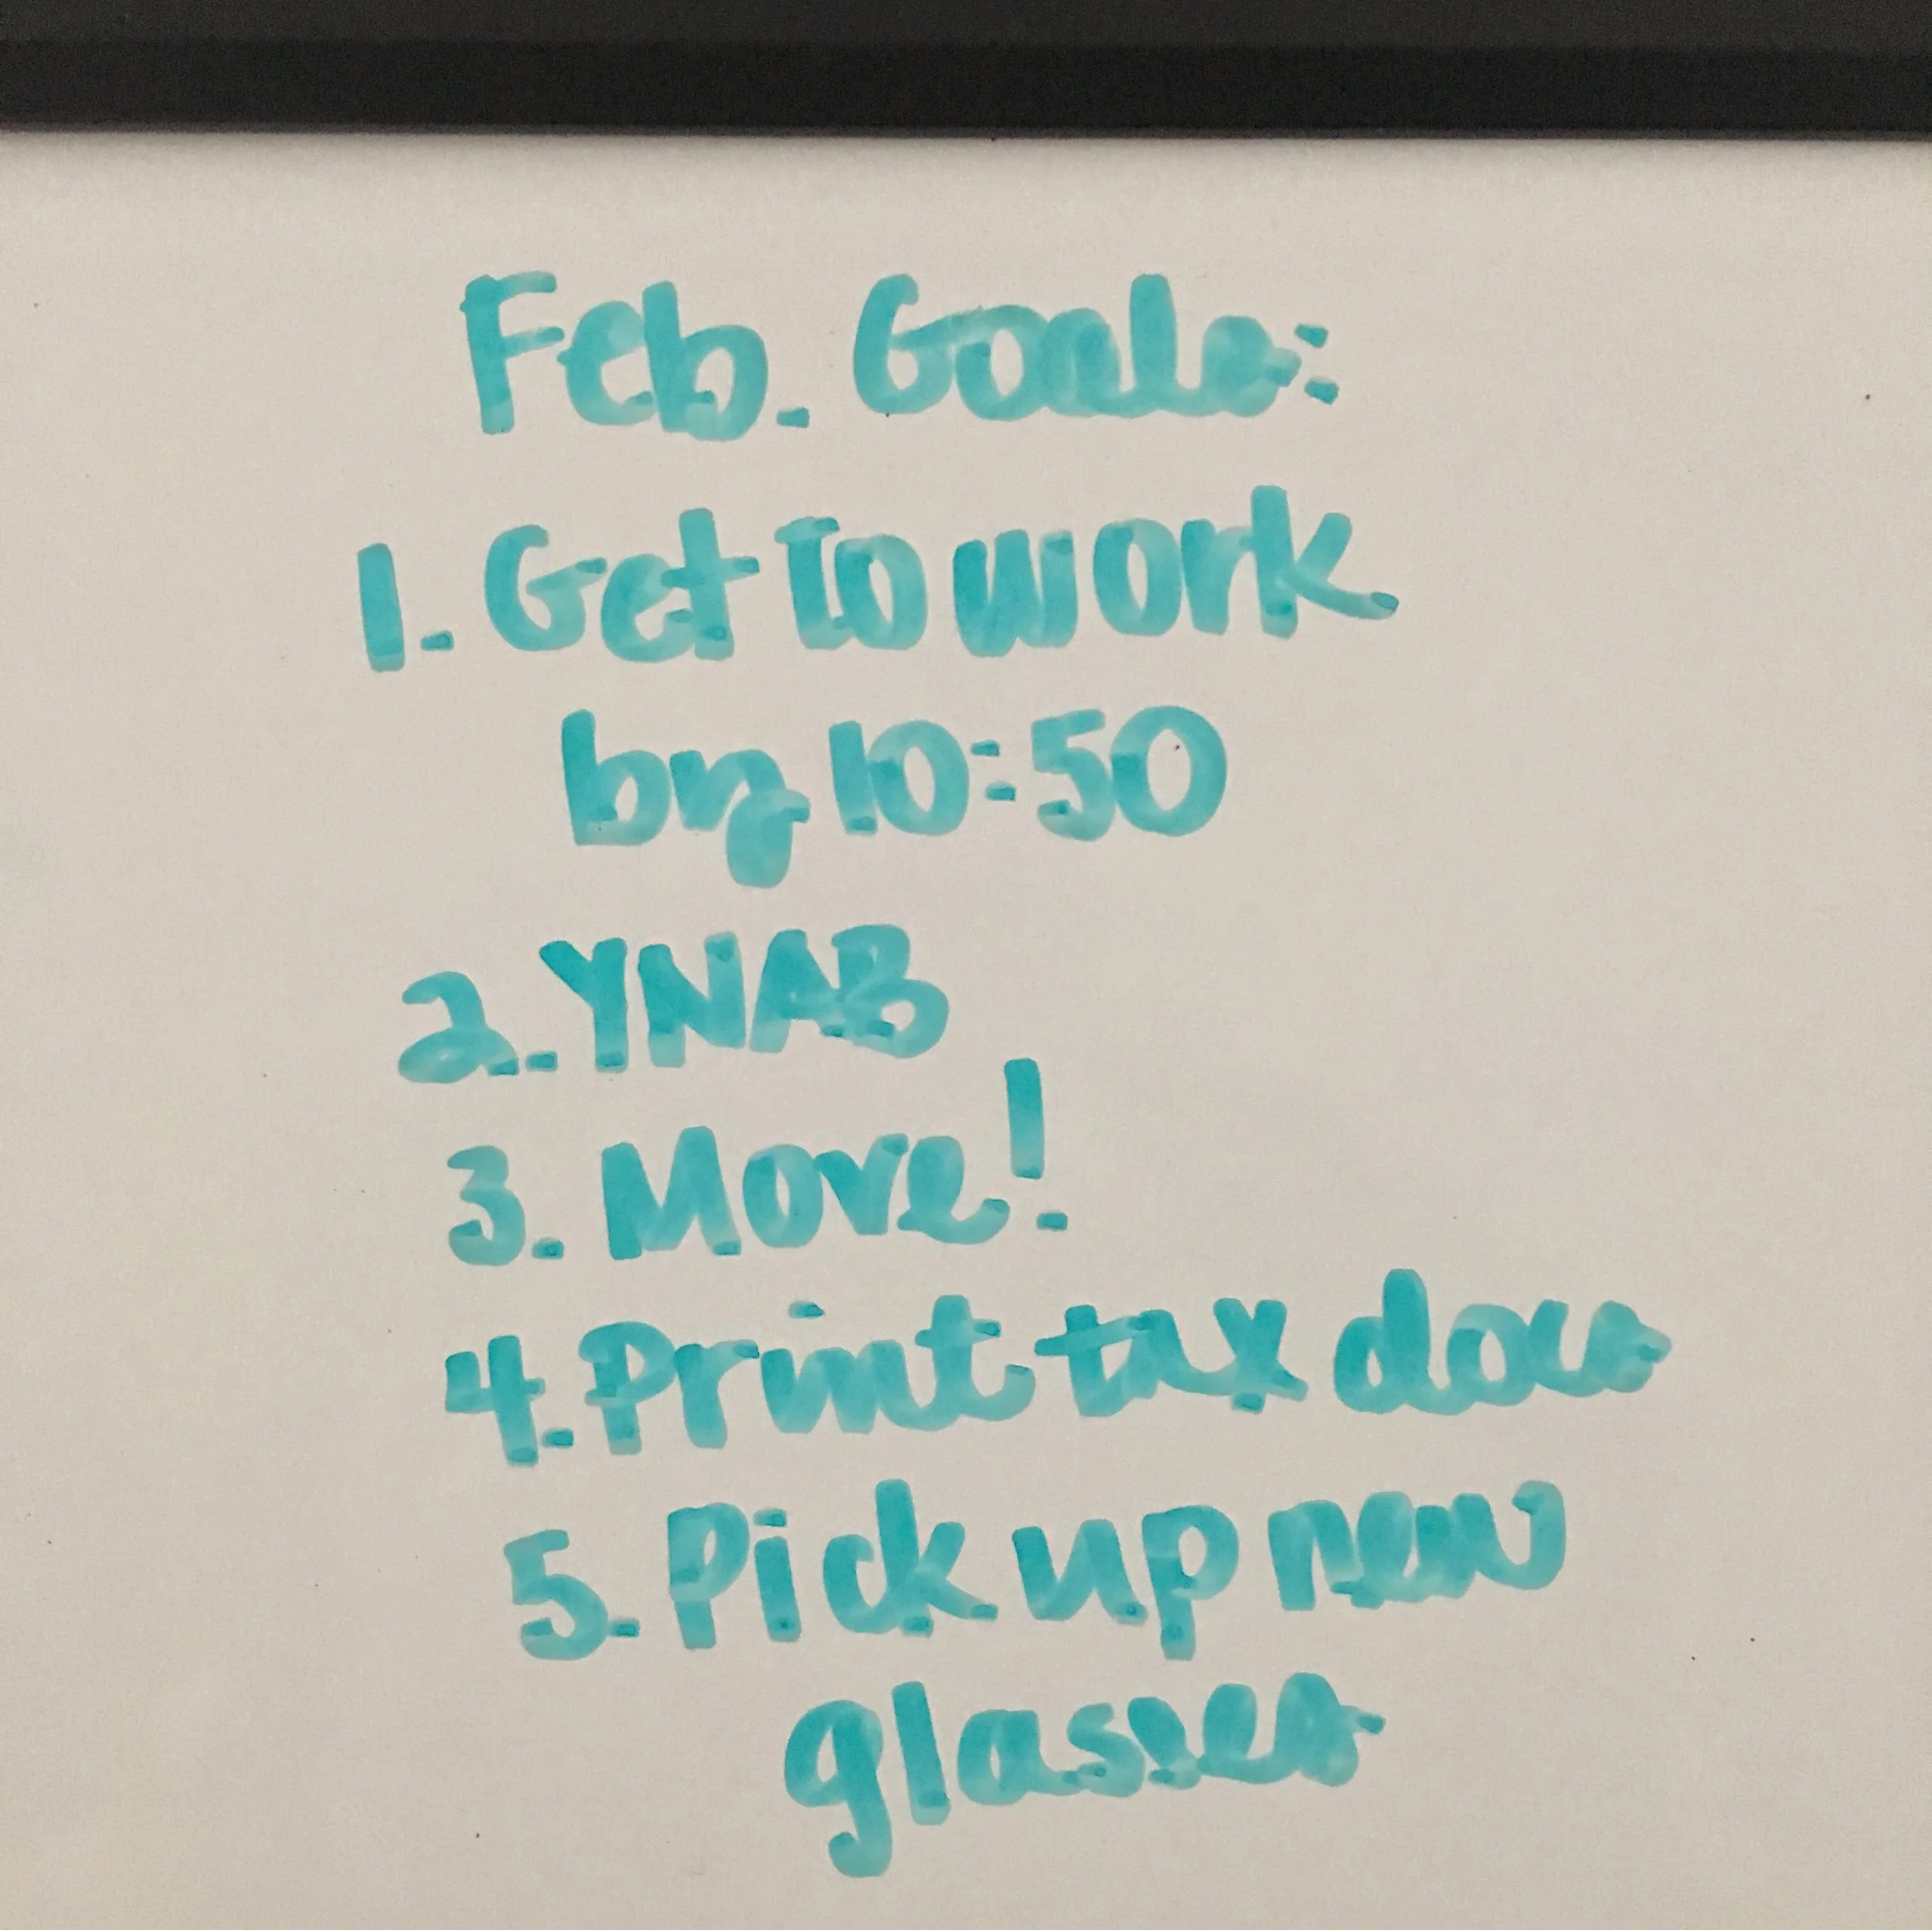 Feb. Goals:
1. Get to work
by 10:50
2. YNAB
3. Move!
4. Print tax docs
5. Pick up new
glasses